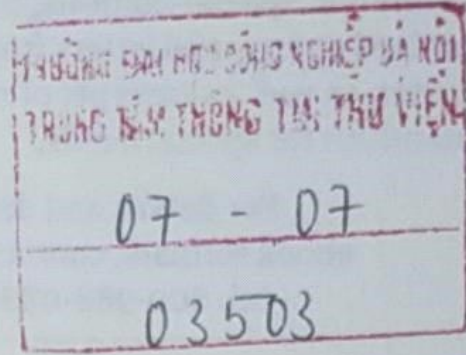 TRƯỜNG ĐẠI HỌC CÔNG NGHIỆP HÀ NỘI
TRUNG TÂM THÔNG TIN THƯ VIỆN
07 - 07
03503